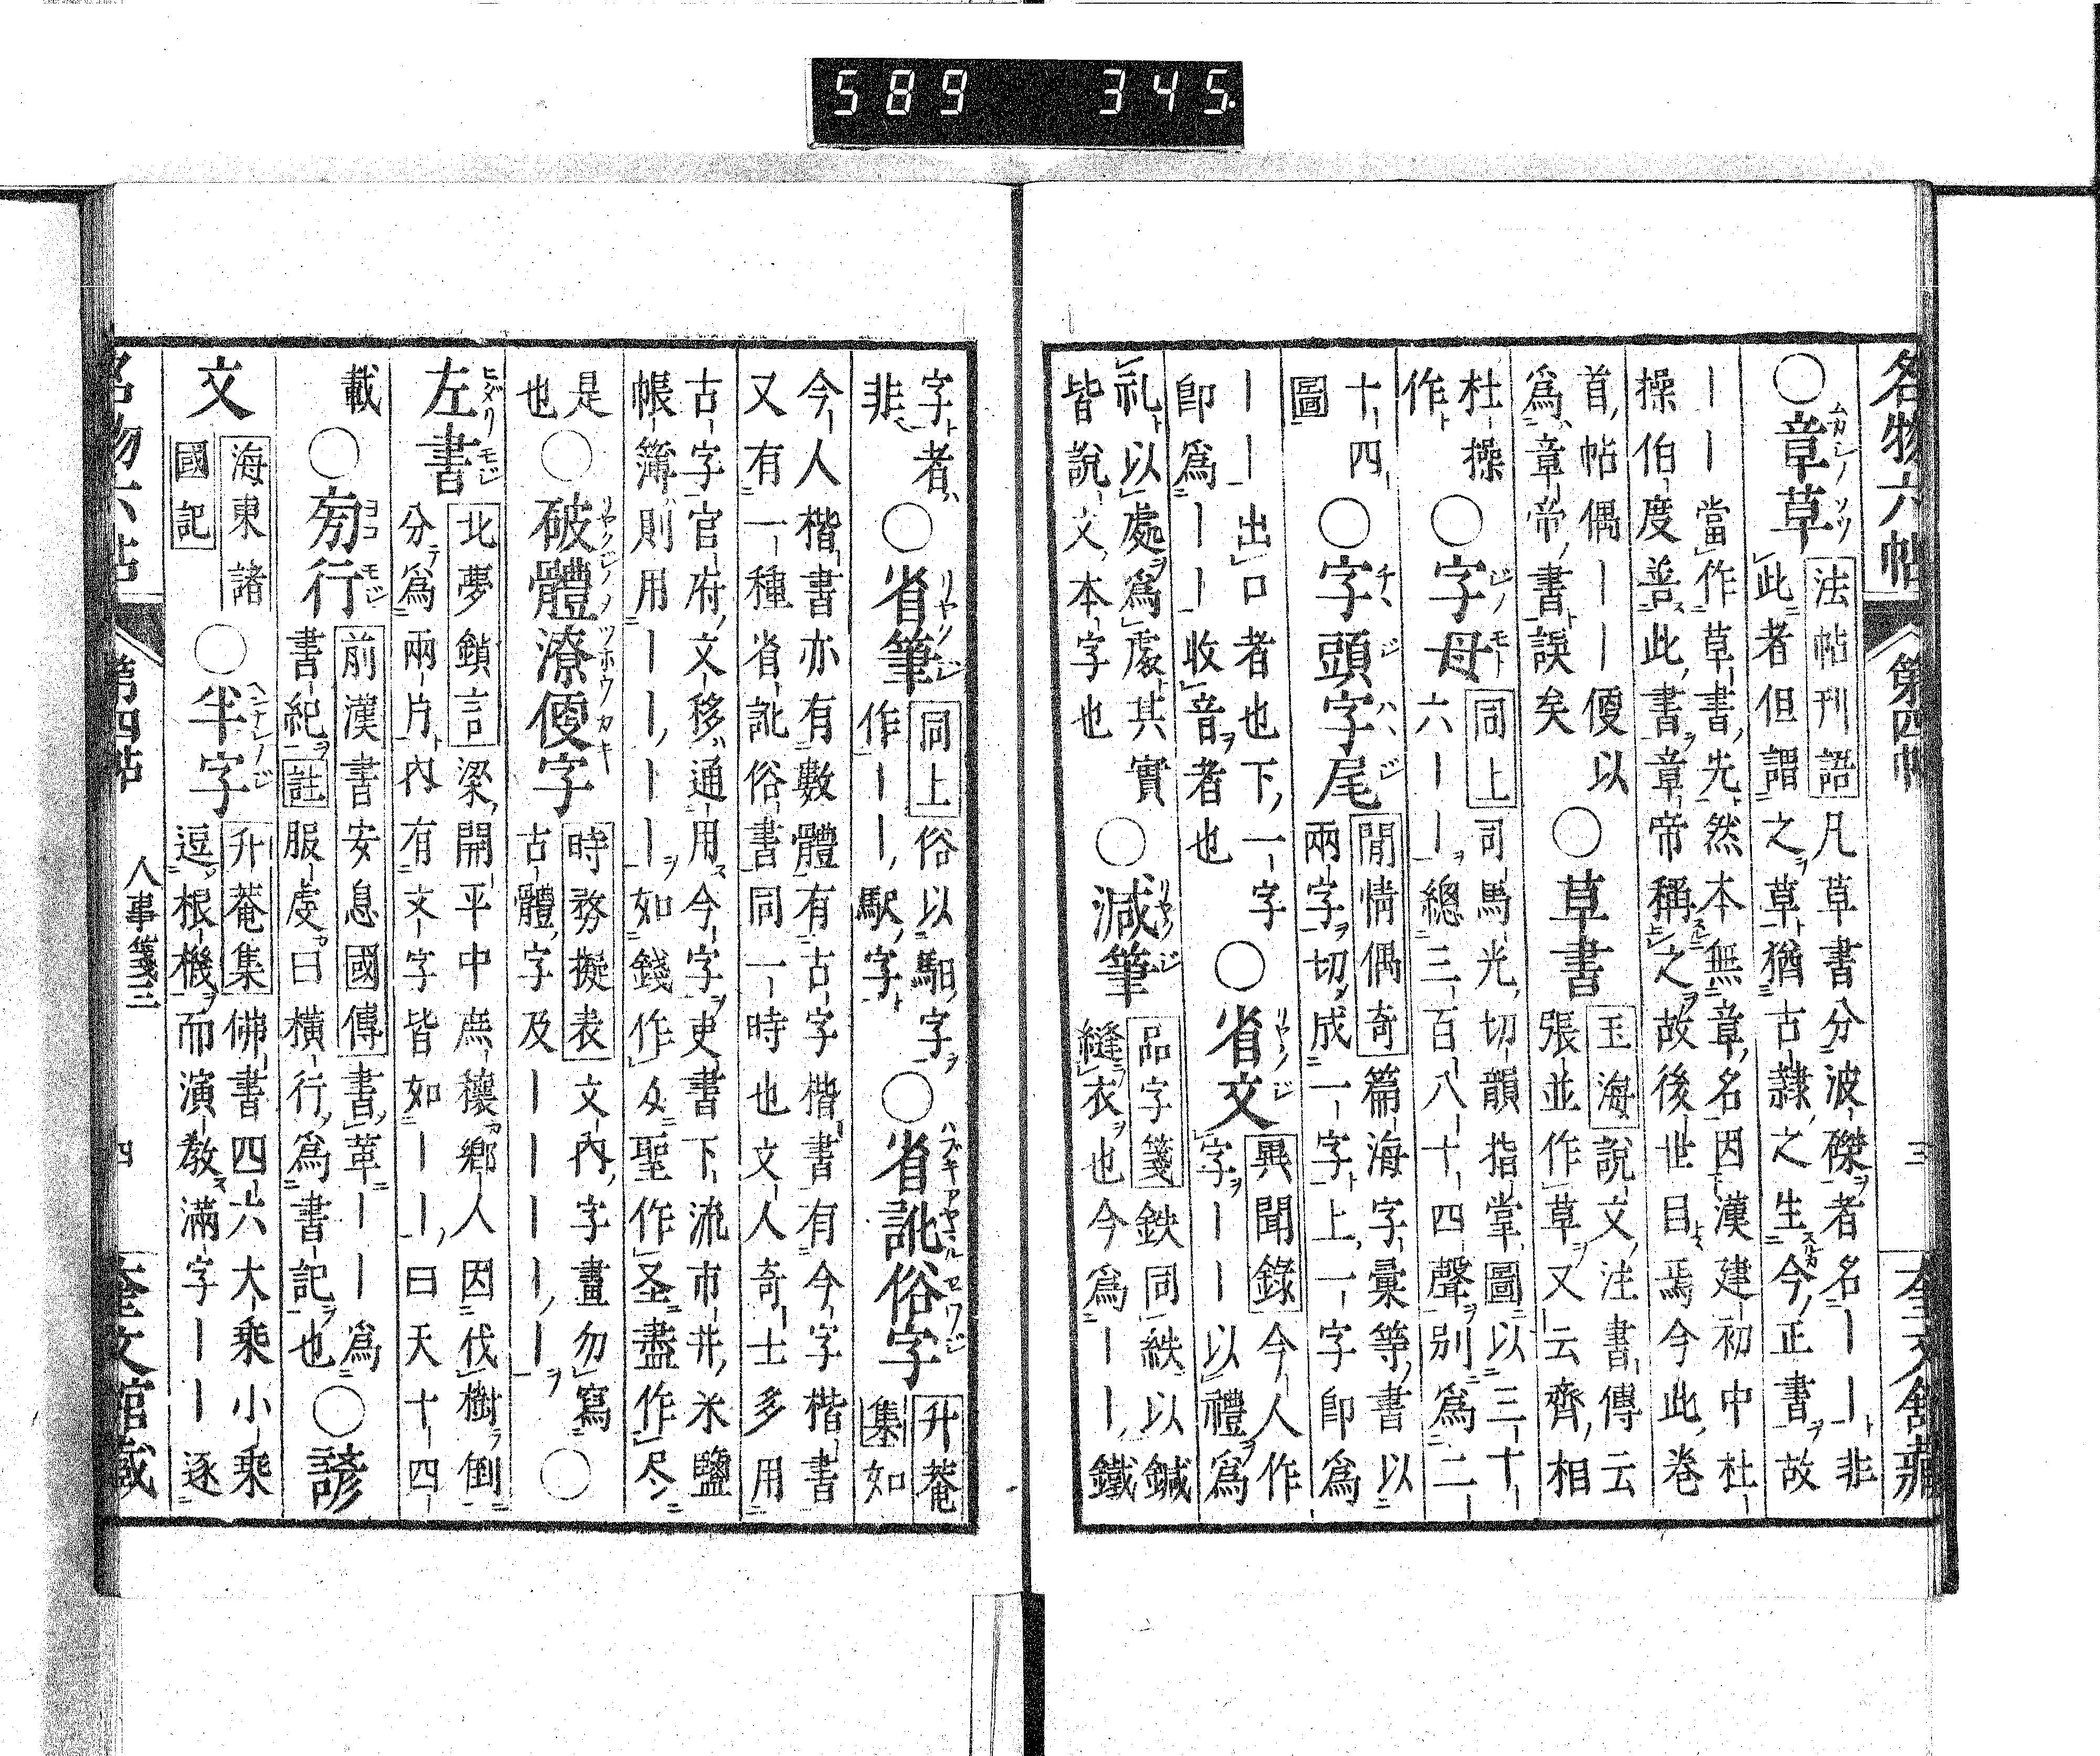 名物六帖 第四帖 三 奎文舘藏
○章草
法帖刊誤凡草書分波磔者名｜｜非
此者但謂之草猶古隷之生今正書故
｜｜當作草書先然本無章名因漢建初中杜
操伯度善此書章帝稱之故後世目焉今此卷
首帖偶｜｜便以
爲章帝書誤矣
○草書
玉海說文注書傳云
張並作草又云齊相
杜操
作
○字母
同上司馬光切韻指掌圖以三十
六｜｜總三百八十四聲別爲二
十四
圖
○字頭字尾
閒情偶奇篇海字彙等書以
兩字切成一字上一字卽爲
｜｜出口者也下一字
卽爲｜｜收音者也
○省文
異聞錄今人作
字｜｜以禮爲
礼以處爲䖏其實
皆說文本字也
○減筆
品字箋鉄同紩以鍼
縫衣也今爲｜｜鐵
字者
非
○省筆
同上俗以馹字
作｜｜駅字
○省訛俗字
升菴
集如
今人楷書亦有數體有古字楷書有今字楷書
又有一種省訛俗書同一時也文人奇士多用
古字官府文移通用今字吏書下流市井米鹽
帳簿則用｜｜｜｜如錢作聖作圣盡作尽
是
也
○破體潦便字
時務擬表文內字畫勿寫
古體字及｜｜｜｜｜
○左書
北夢鎖言梁開平中庶穰鄉人因伐樹倒
分爲兩片內有文字皆如｜｜曰天十四
載
○䄱行
前漢書安息國傳書革｜｜爲
書紀註服虔曰橫行爲書記也
○諺文
海東諸
國記
○半字
升菴集佛書四六大乘小乘
逗根機而演教滿字｜｜逐
名物六帖 第四帖 人事箋三 四 奎文舘藏
589 345